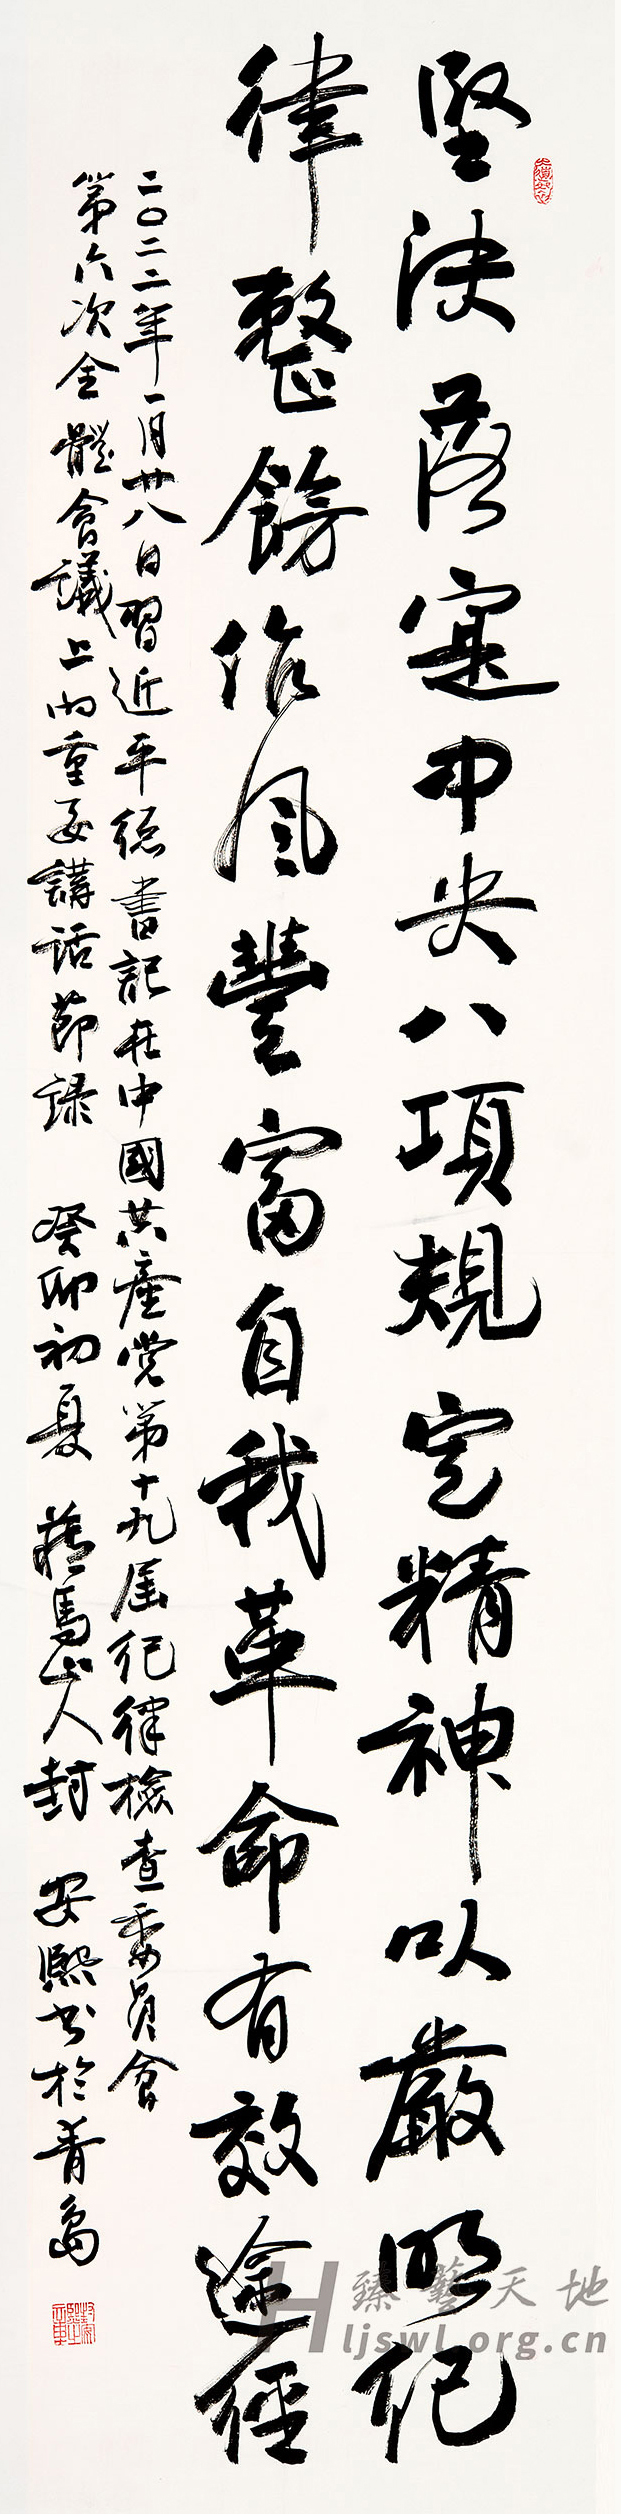 堅決落寔中央八項規定精神以嚴明紀
律整飭作風豐富自我革命有效途徑
二〇二二年一月廿八日習近平總書記在中國共產党第十九屆紀律檢查委員會
第六次全體會議上的重要講話節錄 癸卯初夏 藏馬山人封 安熙書於青島
臻藝天地
ljswl.org.cn